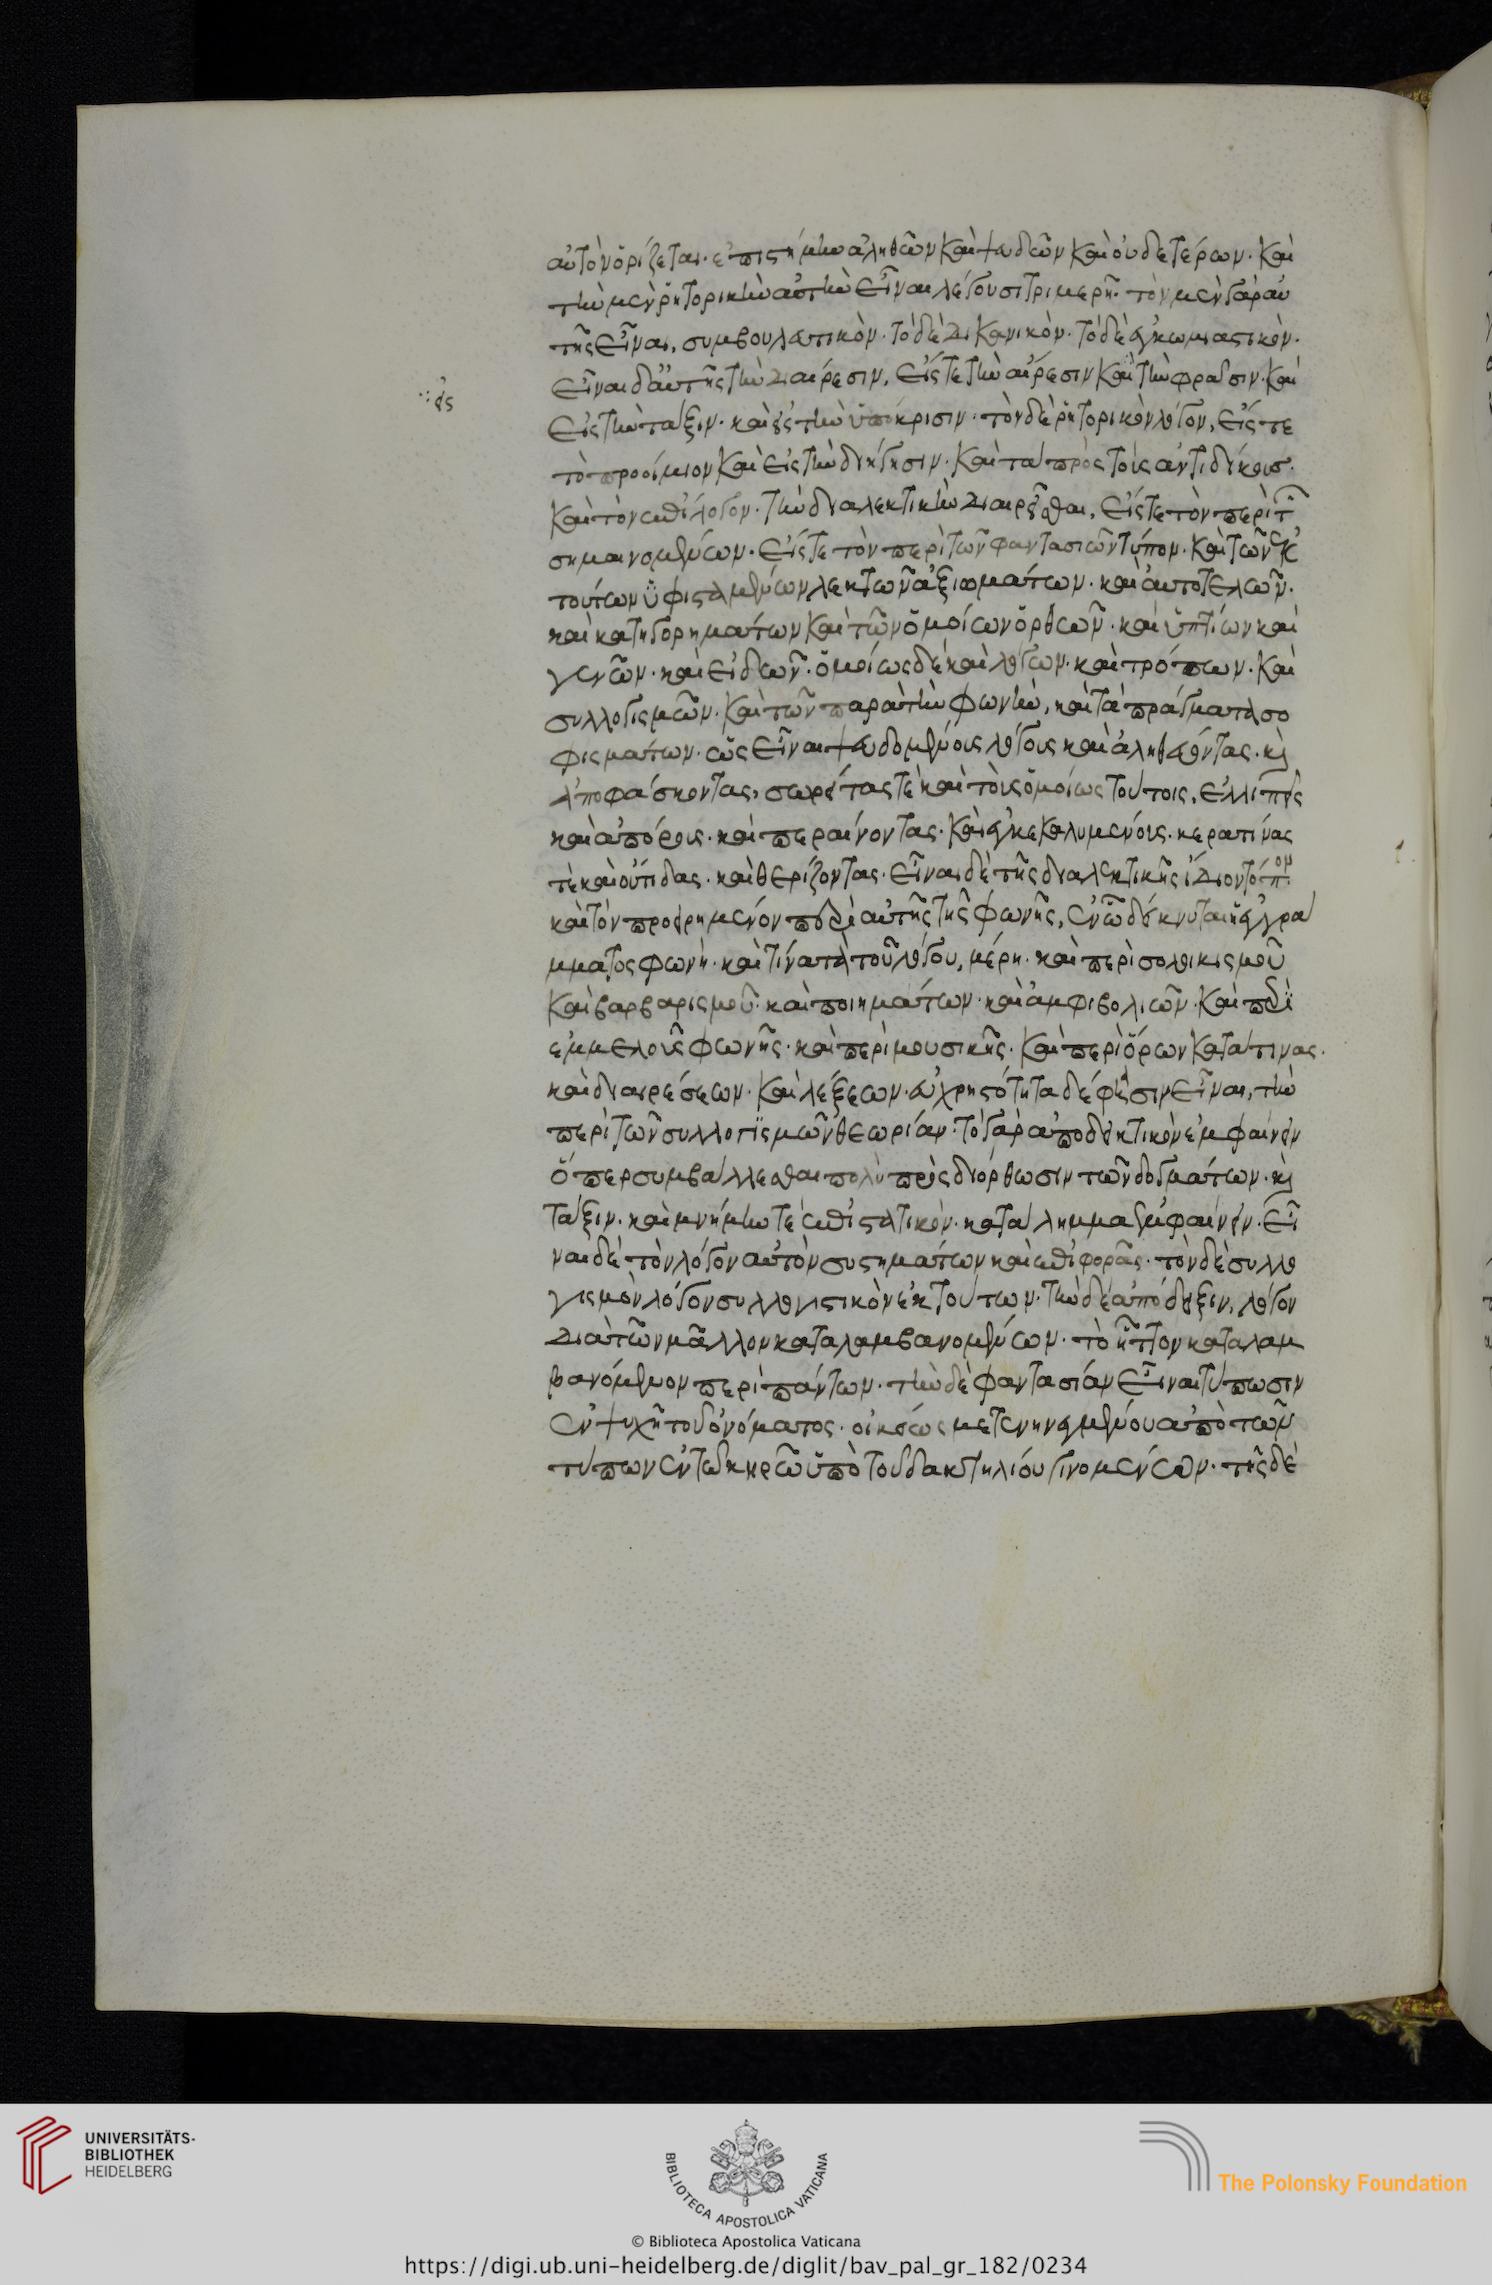 αὐτὸν ὁρίζεται. ἐπιστήμην ἀληθῶν καὶ ψευδῶν καὶ οὐδετέρων. καὶ
τὴν μὲν ῥητορικὴν αὐτὴν εἶναι λέγουσι τριμερῆ. τὸν μὲν γὰρ αὐ
τῆς εἶναι, συμβουλευτικὸν. τὸ δὲ δικανικὸν. τὸ δὲ ἐγκωμιαστικὸν.
εἶναι δ' αὐτῆς τὴν διαίρεσιν, εἴς τε τὴν εὕρεσιν καὶ τὴν φράσιν. καὶ
εἰς τὴν τάξιν. καὶ εἰς τὴν ὑπόκρισιν. τὸν δὲ ῥητορικὸν λόγον, εἴς τε
τὸ προοίμιον καὶ εἰς τὴν διήγησιν. καὶ τὰ πρὸς τοὺς ἀντιδίκους.
καὶ τὸν ἐπίλογον. τὴν διαλεκτικὴν διαιρεῖσθαι, εἴς τε τὸν περὶ τ
σημαινομένων. εἴς τε τὸν περὶ τῶν φαντασιῶν τύπον. καὶ τῶν ἐκ
τούτων ὑφισταμένων λεκτῶν ἀξιωμάτων. καὶ αὐτοτελῶν.
καὶ κατηγορημάτων καὶ τῶν ὁμοίων ὀρθῶν. καὶ ὑπτίων καὶ
γενῶν. καὶ εἰδῶν. ὁμοίως δὲ καὶ λόγων. καὶ τρόπων. καὶ
συλλογισμῶν. καὶ τῶν παρὰ τὴν φωνὴν, καὶ τὰ πράγματα σο
φισμάτων. ὡς εἶναι ψευδομένοις λόγοις καὶ ἀληθεύοντας. κὶ
ἀποφάσκοντας, σωρείτας τε καὶ τοὺς ὁμοίως τούτοις, ἐλλιπεῖς
καὶ ἀπόροις. καὶ περαίνοντας. καὶ ἐγκεκαλυμενοις. κερατίνας
τὲ καὶ οὔτιδας. καὶ θερίζοντας. εἶναι δὲ τῆς διαλεκτικῆς ἴδιον τόπον
καὶ τὸν προειρημενον περὶ αὐτῆς τῆς φωνῆς, ἐν ᾧ δείκνυται ἡ ἐγγρά
μματος φωνὴ. καὶ τίνα τὰ τοῦ λόγου, μέρη. καὶ περὶ σολοικισμοῦ
καὶ βαρβαρισμοῦ. καὶ ποιημάτων. καὶ ἀμφιβολιῶν. καὶ περὶ
ἐμμελοῦς φωνῆς. καὶ περὶ μουσικῆς. καὶ περὶ ὅρων κατά τινας.
καὶ διαιρέσεων. καὶ λέξεων. εὐχρηστότητα δέ φασιν εἶναι, τὴν
περὶ τῶν συλλογισμῶν θεωρίαν. τὸ γὰρ ἀποδεικτικὸν ἐμφαίνειν
ὅπερ συμβάλλεσθαι πολὺ πρὸς διόρθωσιν τῶν δογμάτων. κὶ
τάξιν. καὶ μνήμην τὲ ἐπιστατικὸν. κατάλημμα ἐμφαίνειν. εἶ
ναι δὲ τὸν λόγον αὐτὸν συστημάτων καὶ ἐπιφορᾶς. τὸν δὲ συλλο
γισμὸν λόγον συλλογιστικὸν ἐκ τούτων. τὴν δὲ ἀπόδειξιν, λόγον
διὰ τῶν μᾶλλον καταλαμβανομένων. τὸ ἧττον καταλαμ
βανόμενον περὶ πάντων. τὴν δὲ φαντασίαν εἶναι τύπωσιν
ἐν ψυχῇ τοῦ ὀνόματος. οἰκείως μετενηνεγμένου ἀπὸ τῶν
τύπων ἐν τῷ κηρῷ ὑπὸ τοῦ δακτυλίου γινομένων. τῆς δὲ
UNIVERSITÄTS-
BIBLIOTHEK
HEIDELBERG
BIBLIOTECA APOSTOLICA VATICANA
The Polonsky Foundation
© Biblioteca Apostolica Vaticana
https://digi.ub.uni-heidelberg.de/diglit/bav_pal_gr_182/0234